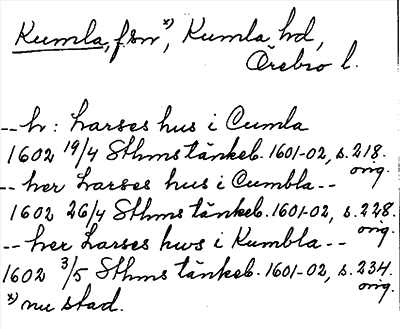 Kumla, fsn *), Kumla hd,
Örebro l.
-- hr: Larses hus i Cumla
1602 19/4 Sthms tänkeb. 1601-02, s. 218.
orig.
-- her Larses hus i Cumbla --
1602 26/4 Sthms tänkeb. 1601-02, s. 228.
orig.
-- her Larses hws i Kumbla --
1602 3/5 Sthms tänkeb. 1601-02, s. 234.
orig.
*) nu stad.